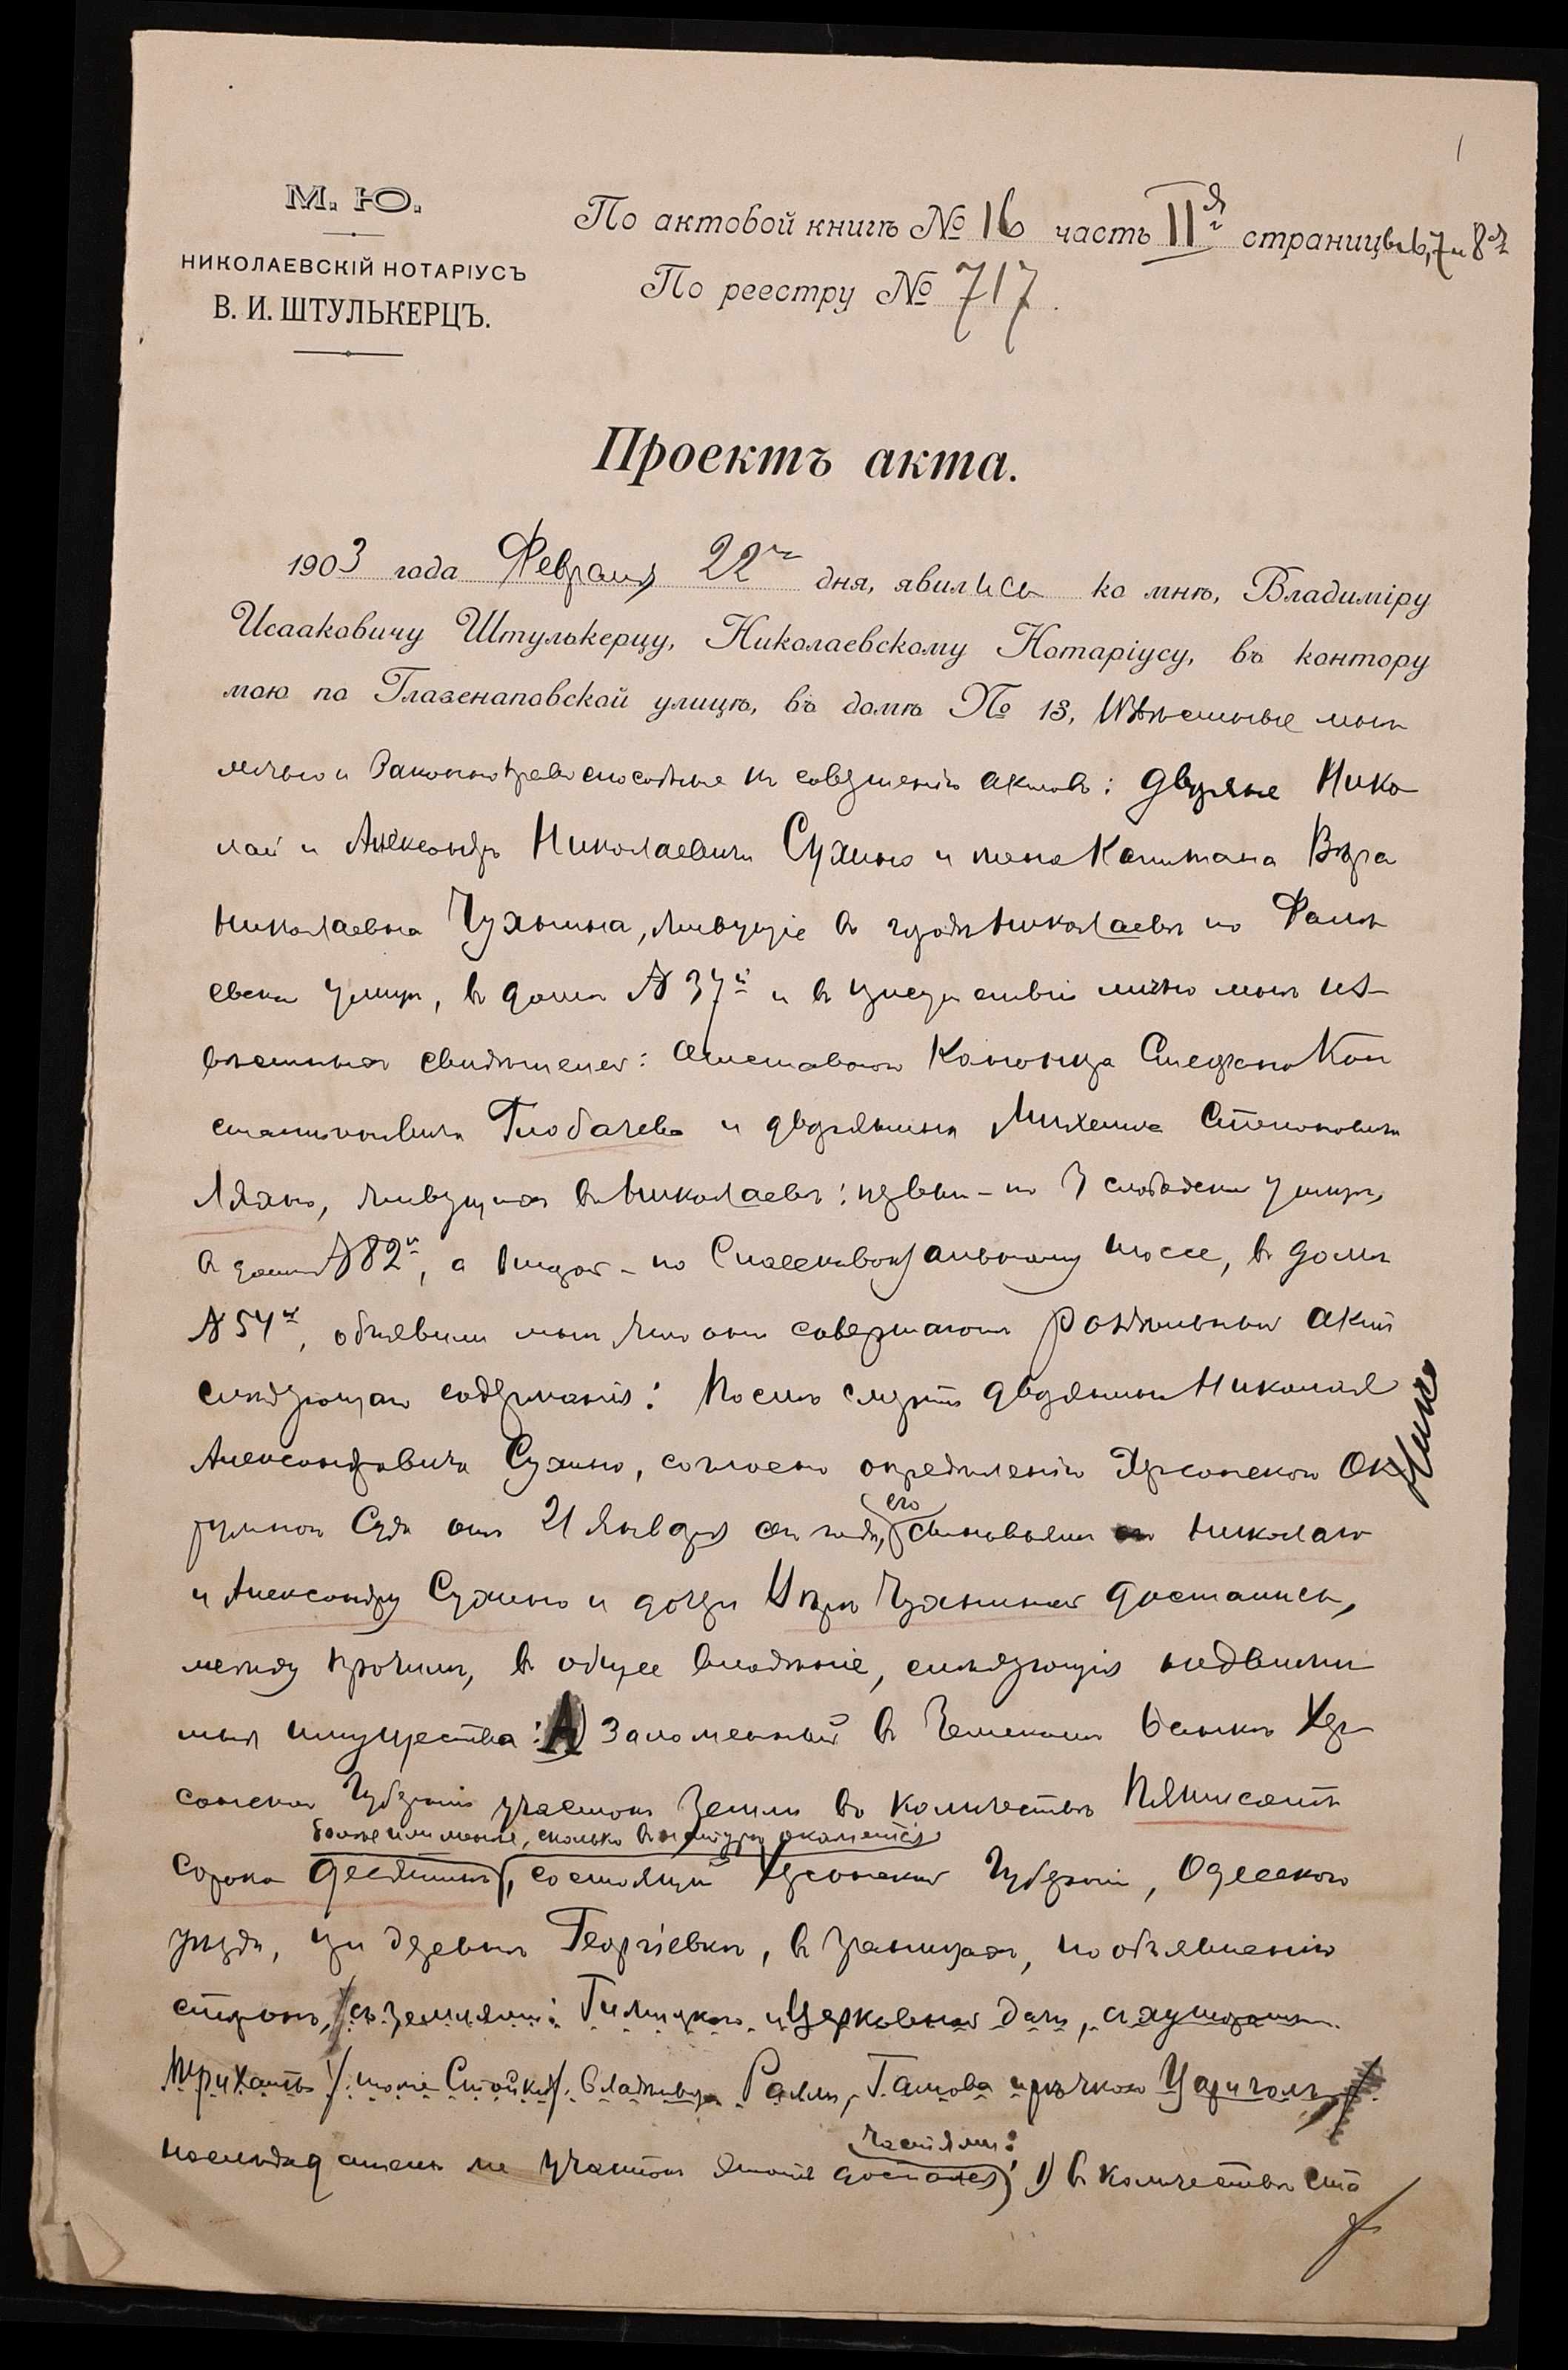 1
М. Ю.
НИКОЛАЕВСКІЙ НОТАРІУСЪ
В. И. ШТУЛЬКЕРЦЪ.
По актовой книгѣ № 16 часть IIя страницы 6, 7 и 8я
По реестру № 717.
Проектъ акта.
1903 года Февраля 22го дня, явились ко мнѣ, Владиміру
Исааковичу Штулькерцу, Николаевскому Нотаріусу, въ контору
мою по Глазенаповской улицѣ, въ домѣ № 13, Извѣстные мнѣ
лично и Законноправоспособные къ совершенію актовъ: дворяне Нико
лай и Александръ Николаевичи Сухино и жена Капитана Вѣра
Николаевна Чухнина, живущіе въ городѣ Николаевѣ по Фалѣ
евской улицѣ, въ домѣ № 37й и въ присутствіи лично мнѣ из-
вѣстныхъ свидѣтелей: отставного Капитана Стефана Кон
стантиновича Глобачева и дворянина Михаила Степановича
Ляхно, живущихъ въ Николаевѣ: первый - по 3 слободской улицѣ,
въ домѣ № 82й, а второй - по Спасскому шоссе, въ домѣ
№ 54й, объявили мнѣ что они совершаютъ раздѣльный актъ
слѣдующаго содержанія: Послѣ смерти дворянина Николая
Александровича Сухино, согласно опредѣленію Херсонского Ок
ружного Суда отъ 21 Января сего года, его сыновьямъ Николаю
и Александру Сухино и дочери Вѣрѣ Чухниной достались,
между прочимъ, въ общее владѣніе, слѣдующія недвижи
мыя имущества: А) Заложенный въ Земскомъ Банкѣ Хер
сонской Губерніи участокъ Земли въ количествѣ Пятисотъ
болѣе или менѣе, сколько въ натурѣ окажется
сорока десятинъ, состоящій Херсонской Губерніи, Одесского
уѣзда, при деревнѣ Георгіевкѣ, въ границахъ, по объявленію
сторонъ, съ землями: и Церковной дачи, съ хуторами
Трихатъ /: тоже Стойки:/ владѣльца Ралли, Ганова и рѣчкою Царичолъ
частями:
наслѣдодателю же участокъ этотъ достался: 1) въ количествѣ ста